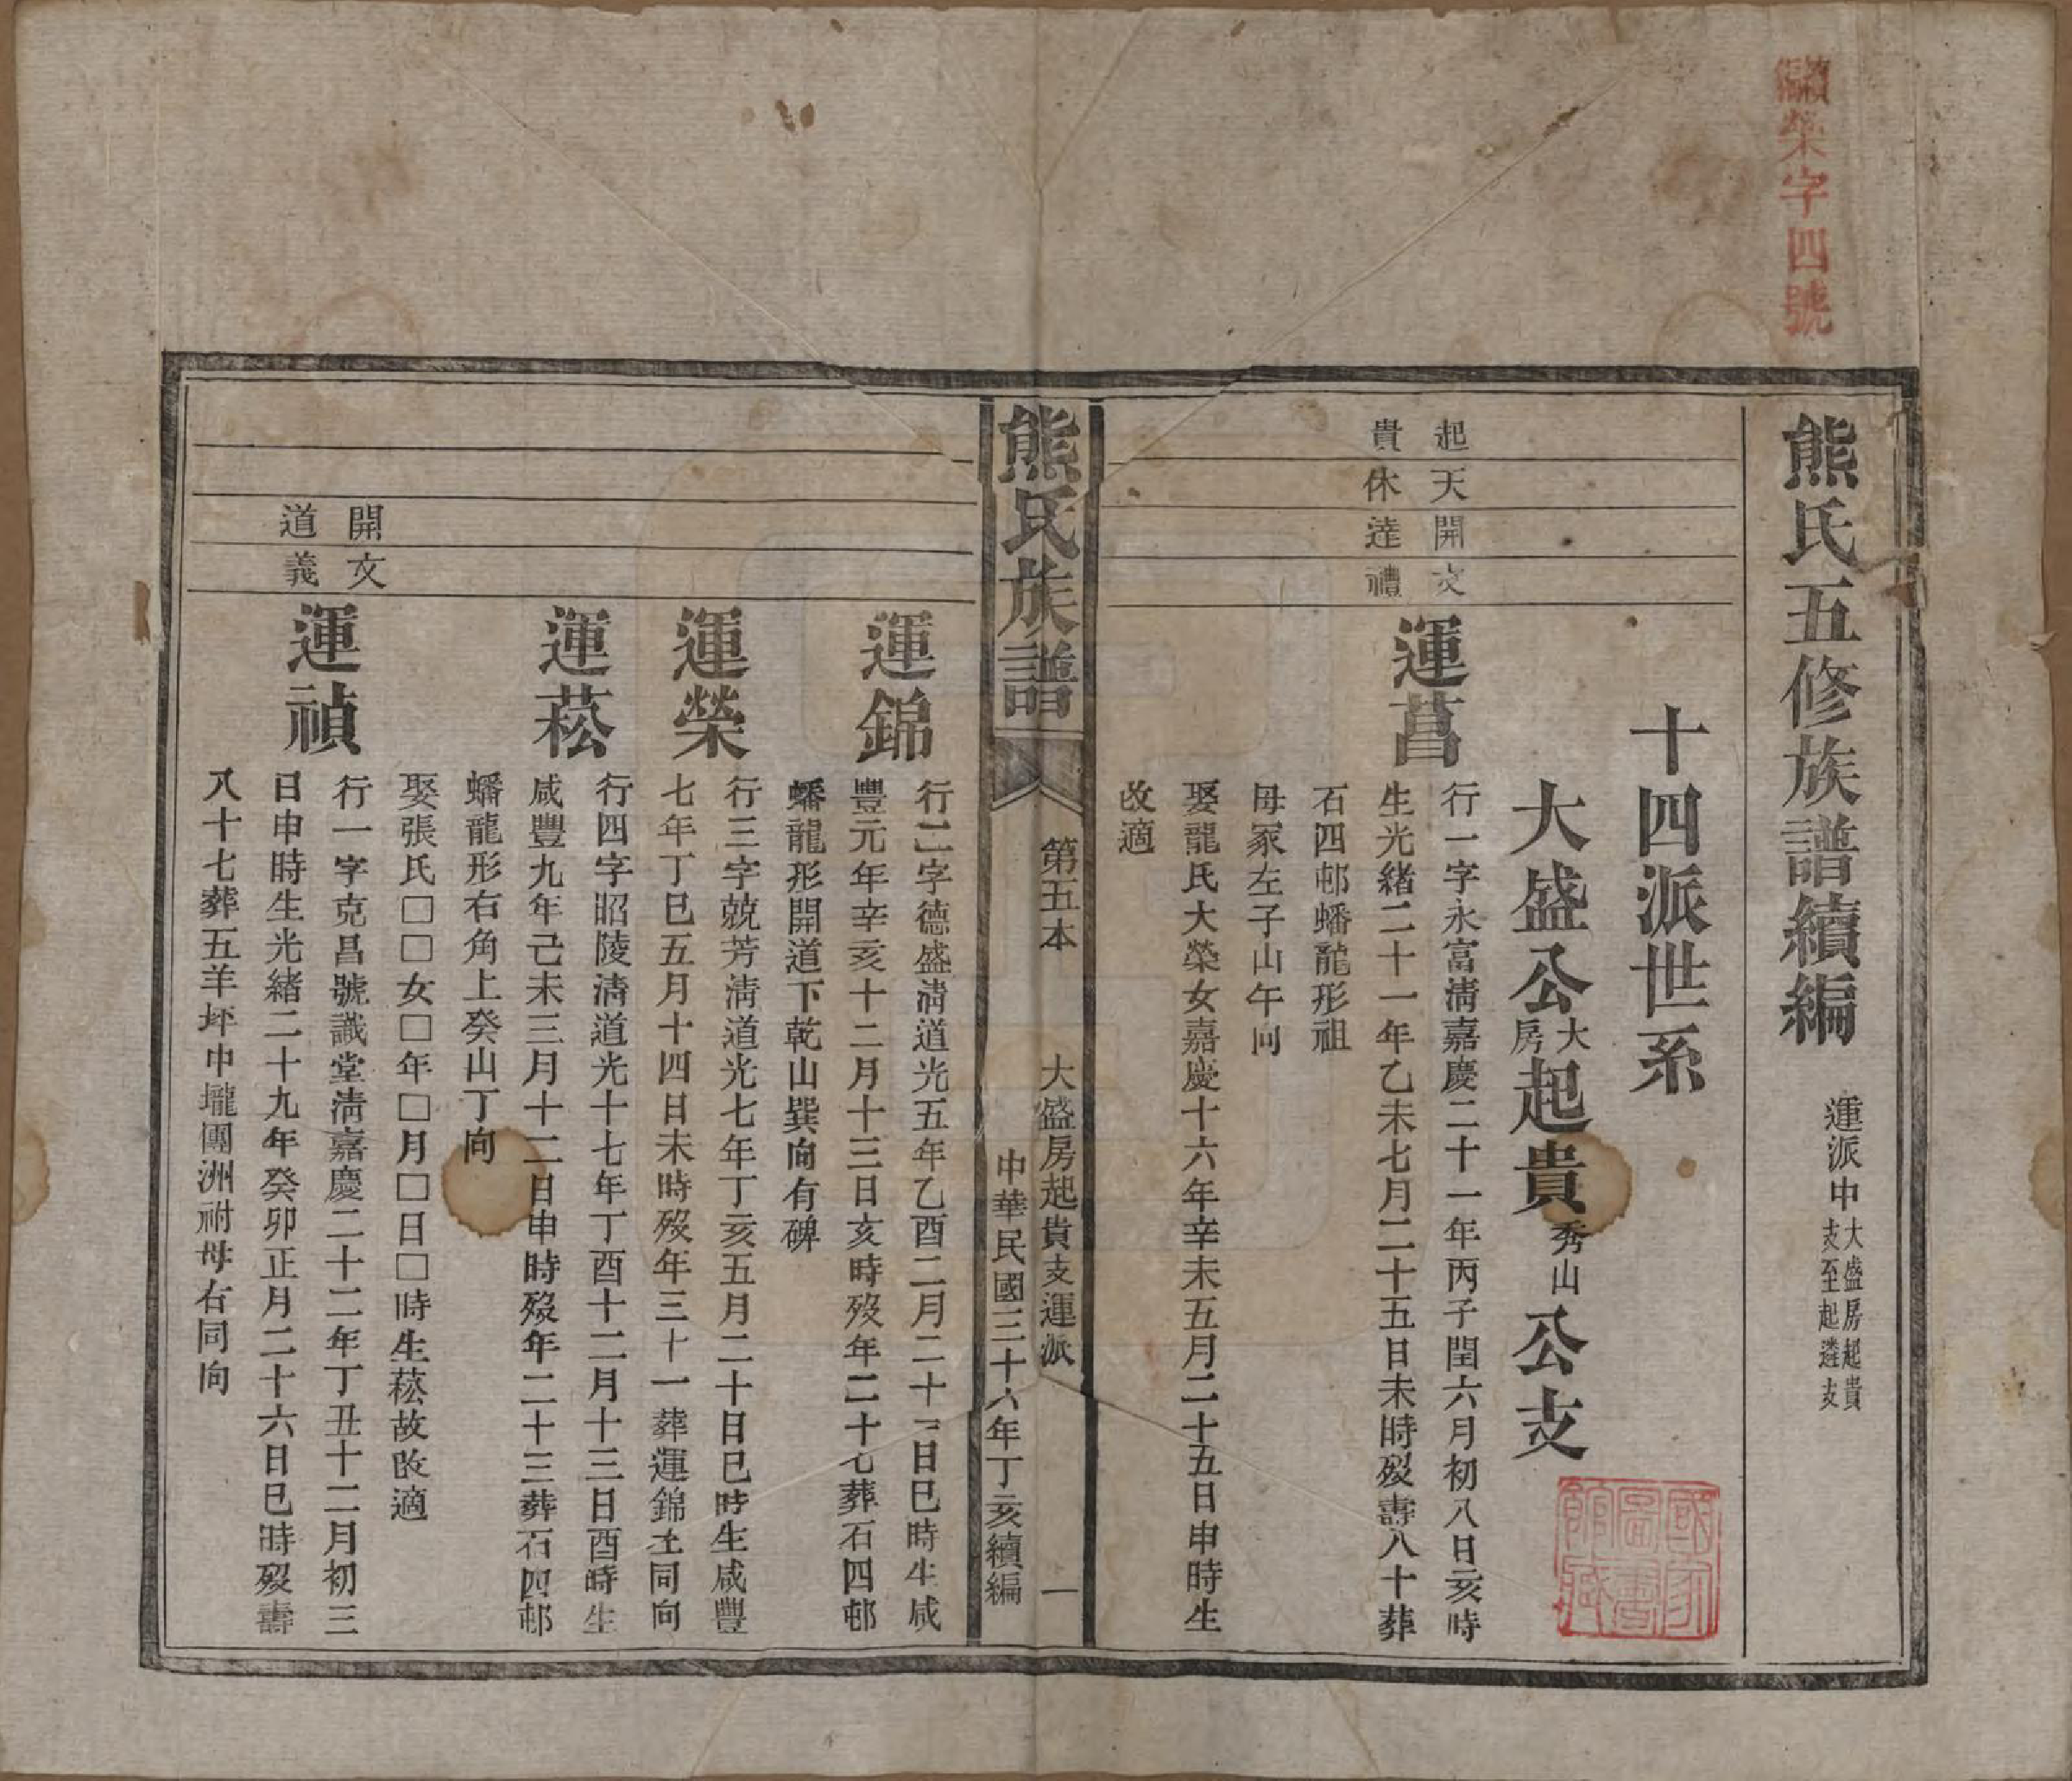 續編榮字四號
熊氏五修族譜續編
運派中大盛房起貴
支至起遴支
十四派世系
大盛公大房起貴秀山公支
起天開文
貴休達禮
運菖
行一字永富淸嘉慶二十一年丙子閏六月初八日亥時
生光緒二十一年乙未七月二十五日未時歿壽八十葬
石四邨蟠龍形祖
母冢左子山午向
娶龍氏大榮女嘉慶十六年辛未五月二十五日申時生
改適
熊氏族譜
第五本
大盛房起貴支運派
一
中華民國三十六年丁亥續編
運錦
行二字德盛淸道光五年乙酉二月二十一日巳時生咸
豐元年辛亥十二月十三日亥時歿年二十七葬石四邨
蟠龍形開道下乾山巽向有碑
運榮
行三字兢芳淸道光七年丁亥五月二十日巳時生咸豐
七年丁巳五月十四日未時歿年三十一葬運錦左同向
運菘
行四字昭陵淸道光十七年丁酉十二月十三日酉時生
咸豐九年己未三月十二日申時歿年二十三葬石四邨
蟠龍形右角上癸山丁向
娶張氏□□女□年□月□日□時生菘故改適
開文
道義
運禎
行一字克昌號識堂淸嘉慶二十二年丁丑十二月初三
日申時生光緒二十九年癸卯正月二十六日巳時歿壽
八十七葬五羊坪中壠團洲祔母右同向
國家圖書館藏